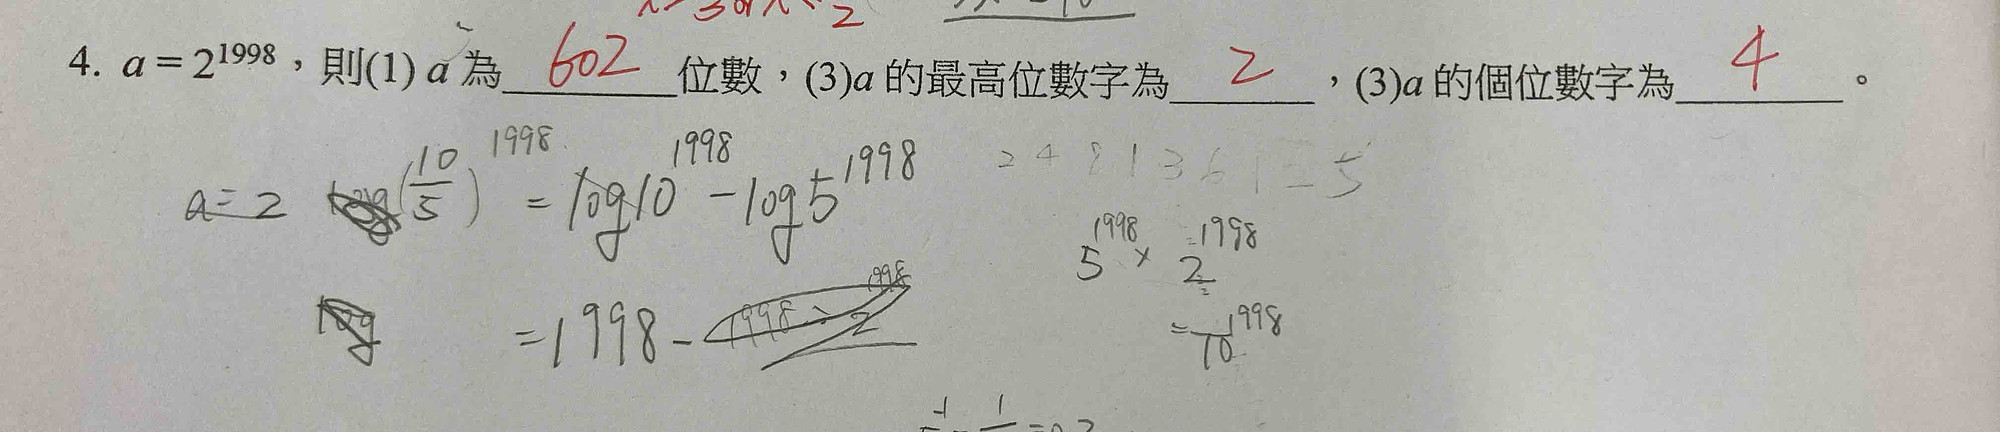 4. a = 2^1998，則(1) a 為 602 位數，(3)a 的最高位數字為 2 ，(3)a 的個位數字為 4 。
a = 2 (10/5)^1998 = log10^1998 - log5^1998
2 4 8 1 3 6 1 - 5
5^1998 × 2^1998
= 1998 -
= 10^1998